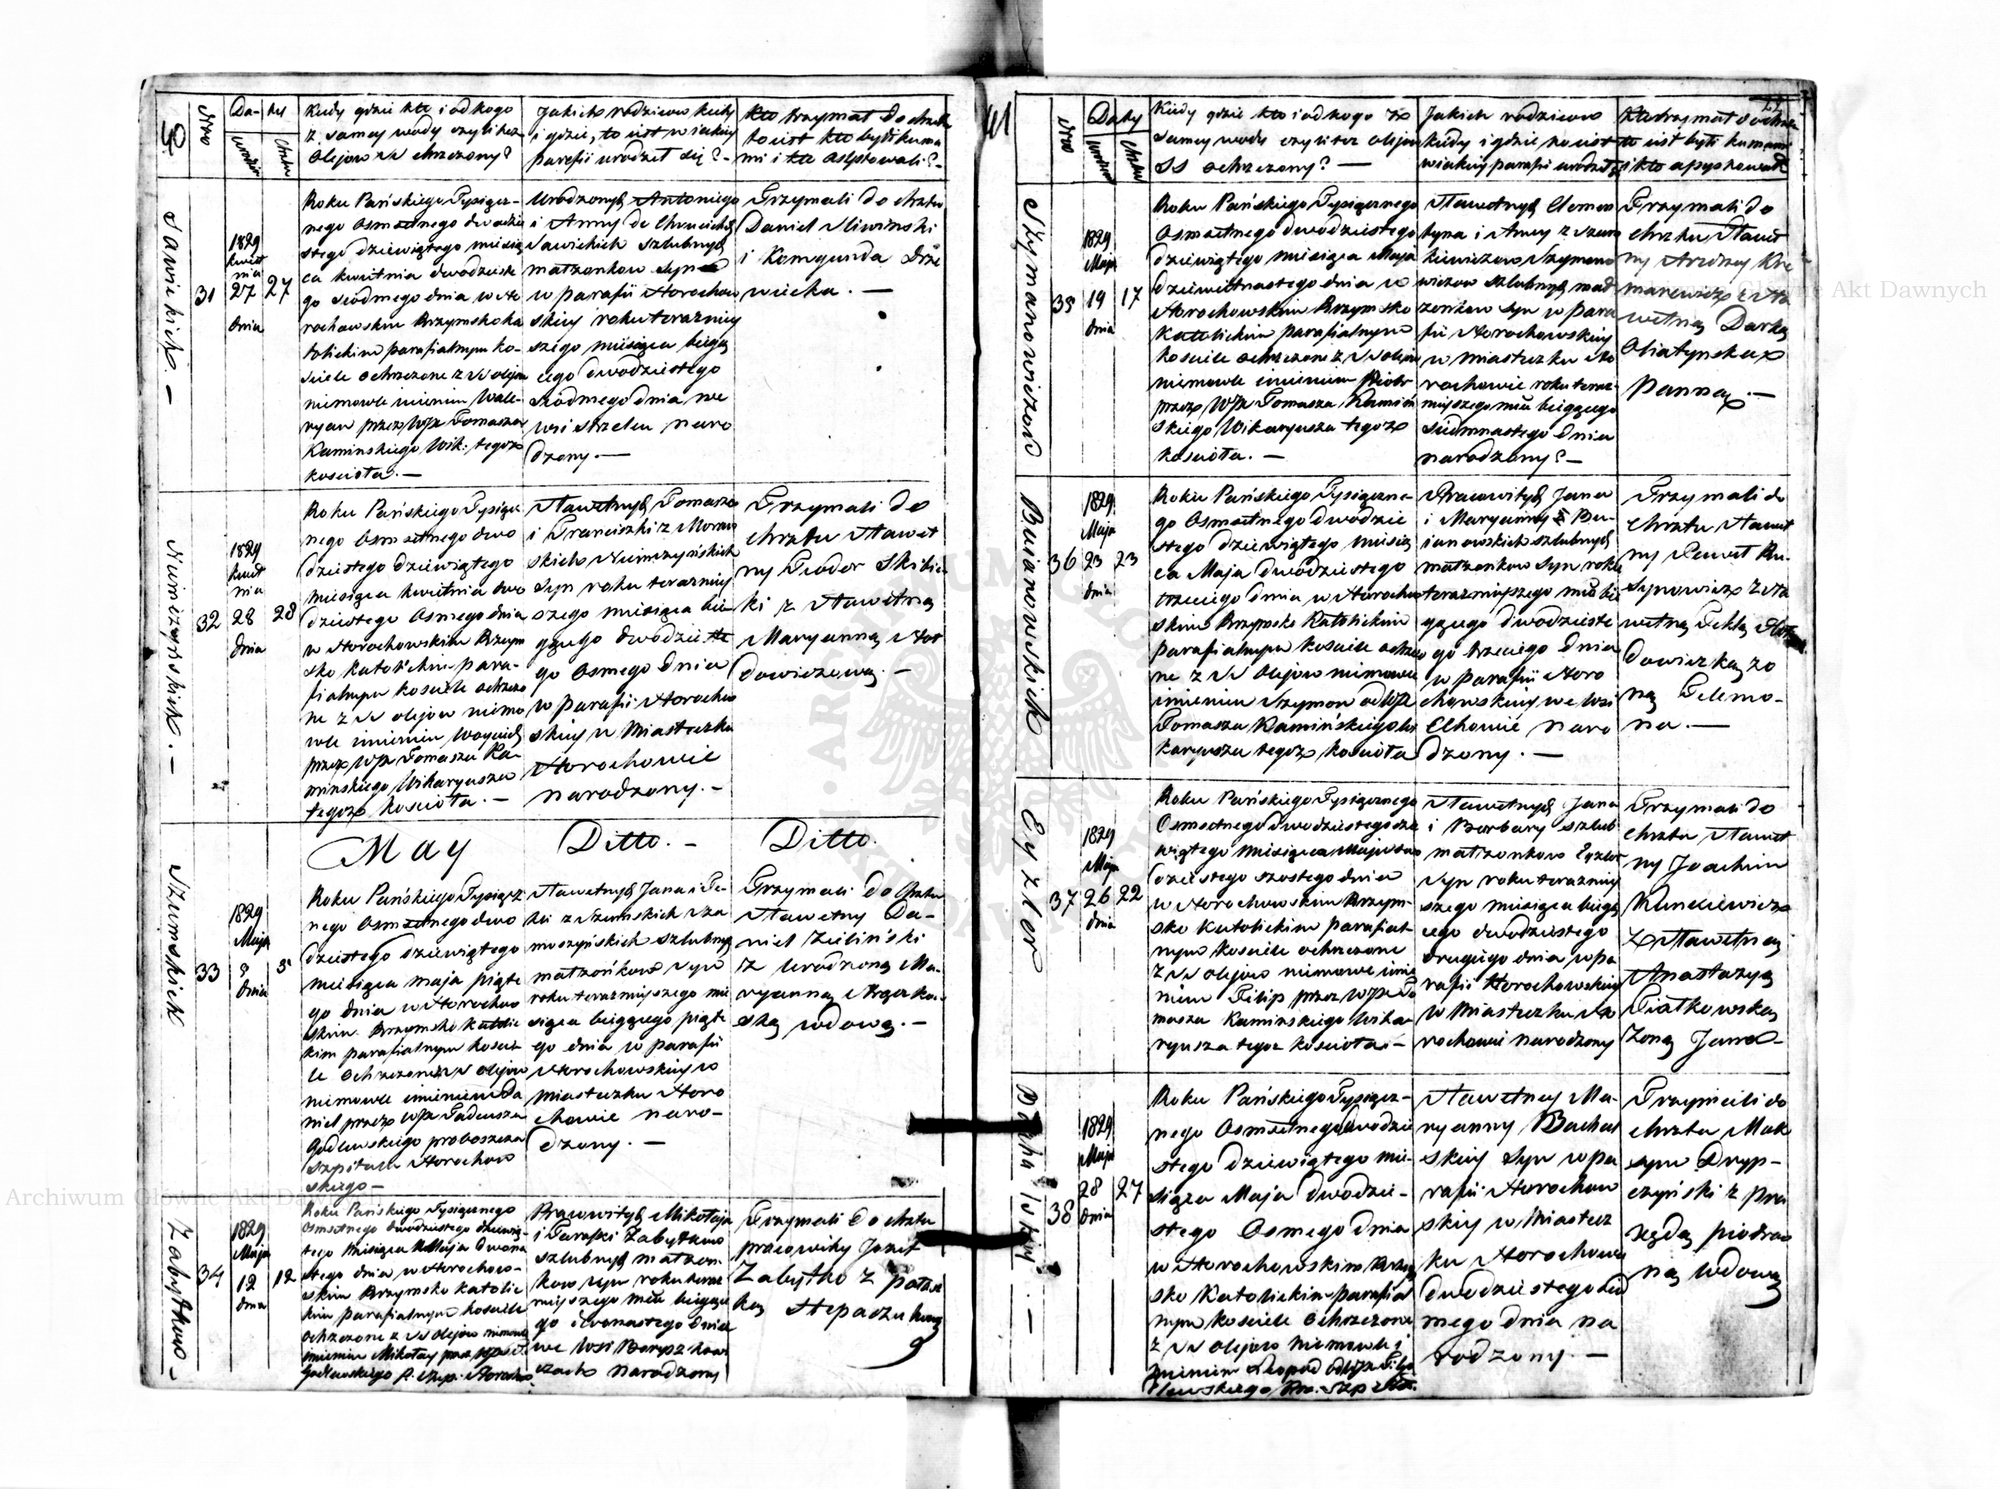 Nro
Da- ty
Urodzin
Chrztu
Kiedy gdzie kto i od kogo
z samey wody czyli też
Olejow SS chrzczony?
Jakich rodzicow kiedy
i gdzie, to iest w iakiey
parafii urodził się? -
Kto trzymał do chrztu
to iest kto byli kuma
mi i kto Assystowali? -
Sawickich. —
31
1829
kwiet
nia
27
dnia
27
Roku Pańskiego Tysiącz-
nego Osmsetnego dwudzie
stego dziewiątego miesią
ca kwietnia dwudzieste
go siódmego dnia w Ho
rochowskim Rzymsko ka
tolickim parafialnym ko-
ściele ochrzczone z SS olejow
niemowle imieniem Wale-
ryan przez WJX Tomasza
Kaminskiego Wik: tegoż
kościoła. —
Urodzonych Antoniego
i Anny de
Sawickich szlubnych
małżonkow syn
w parafii Horochow
skiey roku teraźniey
szego miesiąca bieżą
cego dwudziestego
siódmego dnia we
wsi Strzelcu naro
dzony. —
Trzymali do chrztu
Daniel Sliwinski
i Komgunda Drze
wiecka. —
Niemczyńskich. —
32
1829
kwiet
nia
28
dnia
28
Roku Pańskiego Tysiącz
nego Osmsetnego dwu
dziestego dziewiątego
miesiąca kwietnia dwu
dziestego Osmego dnia
w Horochowskim Rzym
sko katolickim para-
fialnym kościele ochrzczo
ne z SS olejow niemo
wle imieniem Woyciech
przez WJX Tomasza Ka
minskiego Wikaryusza
tegoż kościoła. —
Sławetnych Tomasza
i Franciszki z Moraw
skich Niemczyńskich
syn roku teraźniey
szego miesiąca bie
żącego dwudzieste
go Osmego dnia
w parafii Horochow
skiey w Miasteczku
Horochowie
narodzony. -
Trzymali do
chrztu Sławet
ny Teodor Skibic
ki z Sławetną
Maryanną Hoł
dowiczową. —
May
Ditto. -
Ditto.
Szumskich
33
1829
Maja
5
dnia
5
Roku Pańskiego Tysiącz
nego Osmsetnego dwu
dziestego dziewiątego
miesiąca maja piąte
go dnia w Horochow
skim Rzymsko katolic
kim parafialnym koście
le ochrzczone z SS olejow
niemowle imieniem Da
niel przez WJX Tadeusza
Godlewskiego proboszcza
Szpitala Horochow
skiego —
Sławetnych Jana i Te-
kli z Szumskich Sza
moszyńskich szlubnych
małżonkow syn
roku teraźniejszego mie
siąca bieżącego piąte
go dnia w parafii
Horochowskiey w
Miasteczku Horo
chowie naro-
dzony. —
Trzymali do chrztu
Sławetny Da-
niel Zieliński
z Urodzoną Ma-
ryanną
ską wdową. —
Zabytkow —
34
1829
Maja
12
dnia
12
Roku Pańskiego Tysiącznego
Osmsetnego dwudziestego dziewią-
tego Miesiąca Maja dwuna
stego dnia w Horochow-
skim Rzymsko katolic
kim parafialnym kościele
ochrzczone z SS olejow niemowle
imieniem Mikołay przez WJX T.
Godlewskiego P. Szp. Horocho.
Pracowitych Mikołaja
i Paraski Zabytkow
szlubnych małżon-
kow syn roku teraz
niejszego mca bieżące
go dwunastego dnia
we wsi
narodzony
Trzymali do chrztu
pracowity Jozef
Zabytko z
Stepaczukową
41
Nro
Daty
Urodzin
Chrztu
Kiedy gdzie kto i od kogo z
samey wody czyli też olejow
SS ochrzczony? —
Jakich rodzicow
kiedy i gdzie to iest
w iakiey parafii urodził się
Kto trzymał do chrztu
to iest byli kumami
i kto assystowali
Szymanowiczow
35
1829
Maja
19
dnia
17
Roku Pańskiego Tysiącznego
Osmsetnego dwudziestego
dziewiątego miesiąca Maja
dziewiętnastego dnia w
Horochowskim Rzymsko
Katolickim parafialnym
kościele ochrzczone z SS olejow
niemowle imieniem Piotr
przez WJX Tomasza Kamiń
skiego Wikaryusza tegoż
kościoła. —
Sławetnych Clemen
tyna i Anny z
Szymano
wiczow szlubnych mał
żonkow syn w para
fii Horochowskiey
w miasteczku Ho
rochowie roku teraz-
niejszego mca bieżącego
siedmnastego dnia
narodzony? —
Trzymali do
chrztu Sławet
ny Andrzey
z Sła
wetną Darką
Oliatynską
panną. —
Bucianowskich
36
1829
Maja
23
dnia
23
Roku Pańskiego Tysiączne-
go Osmsetnego dwudzie
stego dziewiątego miesią
ca Maja dwudziestego
trzeciego dnia w Horochow
skim Rzymsko Katolickim
parafialnym kościele ochrzczo
ne z SS olejow niemowle
imieniem Szymon od WJX
Tomasza Kamińskiego Wi
karyusza tegoż kościoła
Pracowitych Jana
i Maryanny Bu-
cianowskich szlubnych
małżonkow syn roku
teraźniejszego mca bie
żącego dwudzieste
go trzeciego dnia
w parafii Horo
chowskiey we wsi
naro
dzony. —
Trzymali do
chrztu Sławet
ny Paweł
z Sła
wetną Teklą
żo
ną
na. —
Eyzler
37
1829
Maja
26
dnia
22
Roku Pańskiego Tysiącznego
Osmsetnego dwudziestego dzie
wiątego Miesiąca Maja dwu
dziestego szostego dnia
w Horochowskim Rzym-
sko katolickim parafial
nym kościele ochrzczone
z SS olejow niemowle imie
niem Filip przez WJX To
masza Kaminskiego Wika
ryusza tegoż kościoła —
Sławetnych Jana
i Barbary szlub
małżonkow Eyzler
syn roku teraźniey
szego miesiąca bieżą
cego dwudziestego
drugiego dnia w pa
rafii Horochowskiey
w Miasteczku Ho
rochowie narodzony
Trzymali do
chrztu Sławet
ny Joachim
Kuncewicz
z Sławetną
Anastazyą
Piatkowską
żoną Jana —
38
1829
Maja
28
dnia
27
Roku Pańskiego Tysiącz-
nego Osmsetnego dwudzie
stego dziewiątego mie-
siąca Maja dwudzie-
stego Osmego dnia
w Horochowskim Rzym
sko Katolickim parafial
nym kościele ochrzczone
z SS olejow niemowle i
mieniem Leopod od WJX T. Go
dlewskiego Szp.
Sławetney Ma-
ryanny Bachal
skiey syn w pa
rafii Horochow
skiey w Miastecz
ku Horochowie
dwudziestego siód
mego dnia na
rodzony. —
Trzymali do
chrztu Mak
sym
z pra
ną wdową